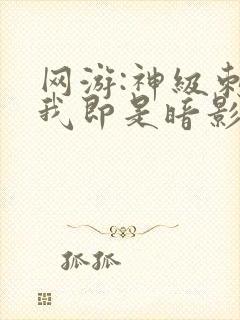 网游:神级刺
我即是暗影
狐狐